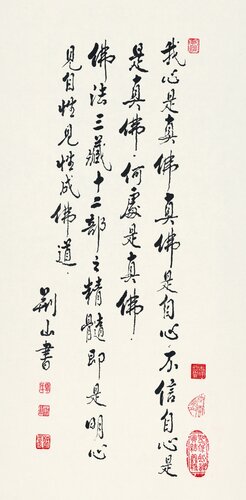 我心是真佛真佛是自心不信自心是
是真佛何處是真佛
佛法三藏十二部之精髓即是明心
見自性見性成佛道
荊山書